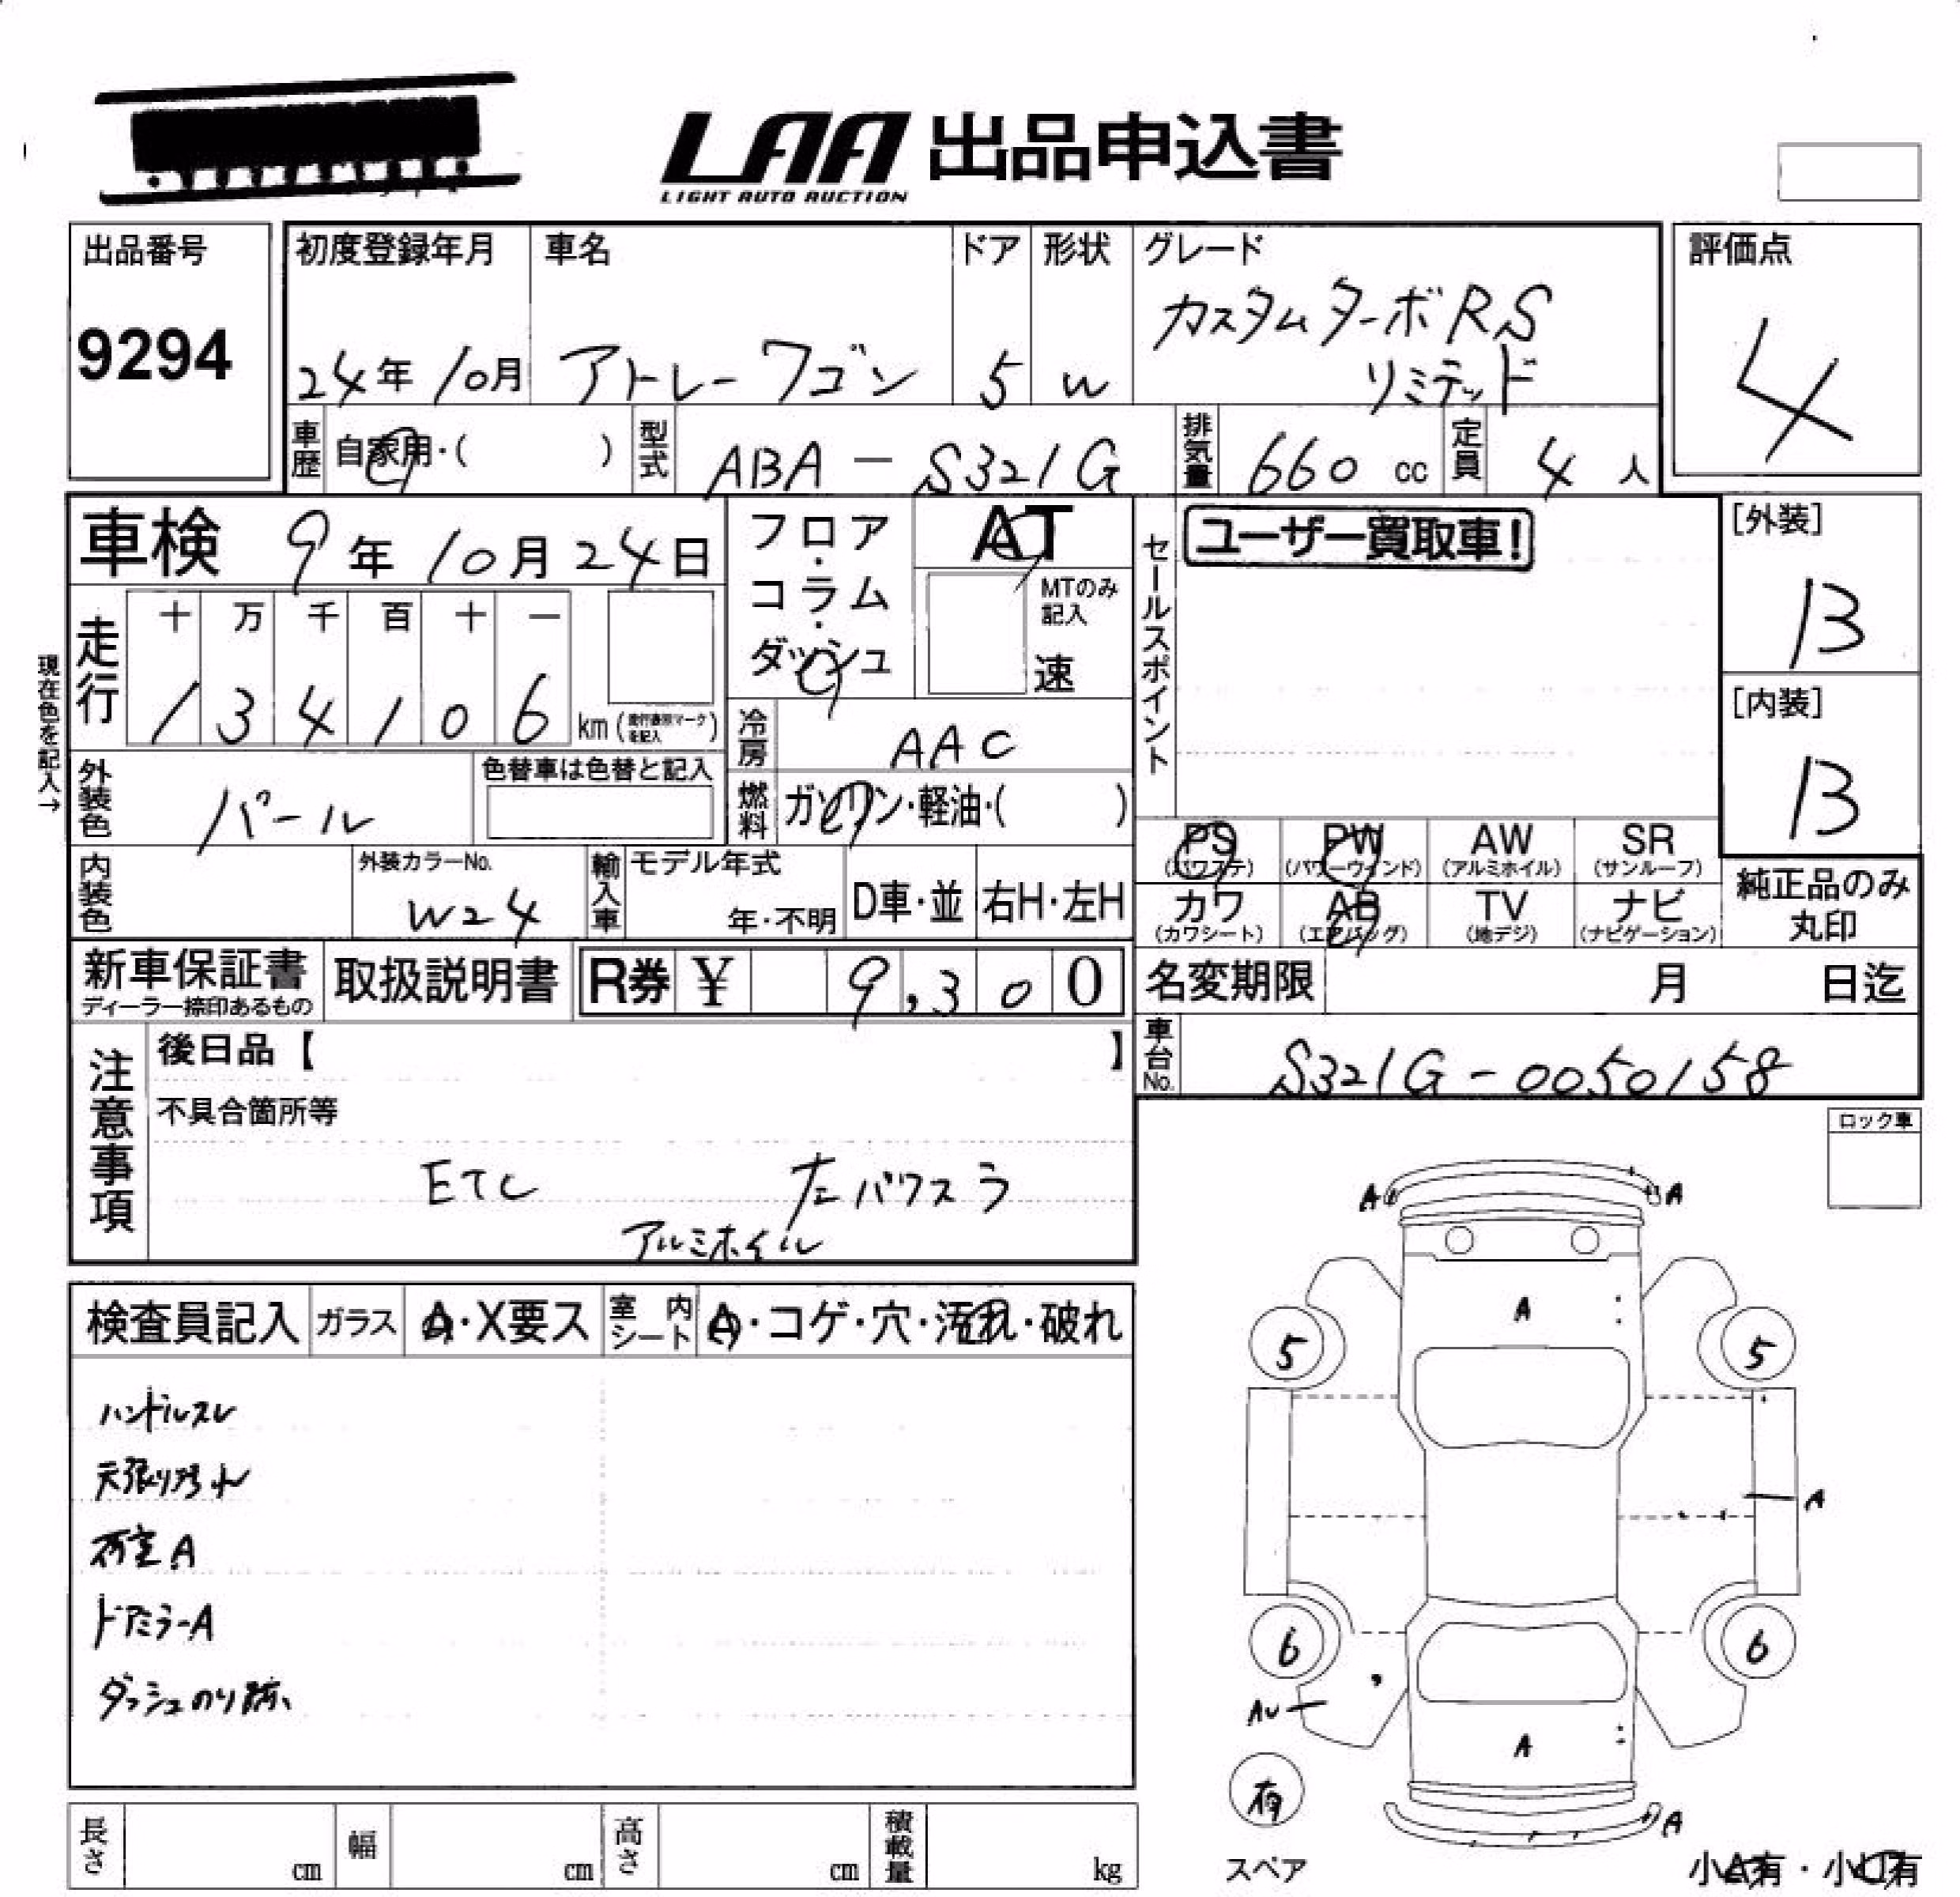 LAA 出品申込書
LIGHT AUTO AUCTION
出品番号
9294
初度登録年月
24年 10月
車名
アトレーワゴン
ドア
5
形状
W
グレード
カスタムターボRS
リミテッド
評価点
4
車歴
自家用・( )
型式
ABA - S321G
排気量
660 cc
定員
4 人
車検 9年 10月 24日
フロア・コラム・ダッシュ
AT
MTのみ記入
速
セールスポイント
ユーザー買取車!
[外装]
B
[内装]
B
現在色を記入→
走行
十 万 千 百 十 一
1 3 4 1 0 6 km
冷房
AAC
外装色
パール
色替車は色替と記入
燃料
ガソリン・軽油・( )
PS (パワステ)
PW (パワーウインド)
AW (アルミホイル)
SR (サンルーフ)
内装色
外装カラーNo.
W24
輸入車
モデル年式
年・不明
D車・並
右H・左H
カワ (カワシート)
AB (エアバッグ)
TV (地デジ)
ナビ (ナビゲーション)
純正品のみ
丸印
新車保証書
ディーラー捺印あるもの
取扱説明書
R券 ¥ 9,300
名変期限 月 日迄
車台No.
S321G-0050158
注意事項
後日品【 】
不具合箇所等
ETC 左パワスラ
アルミホイル
ロック車
検査員記入
ガラス
A・X要ス
室内シート
A・コゲ・穴・汚れ・破れ
ハンドルスレ
天張り汚れ
荷室A
ドアミラーA
ダッシュのり跡
A A
A
5 5
A
6 6
AU
A
有
A
スペア
小A有・小U有
長さ cm
幅 cm
高さ cm
積載量 kg